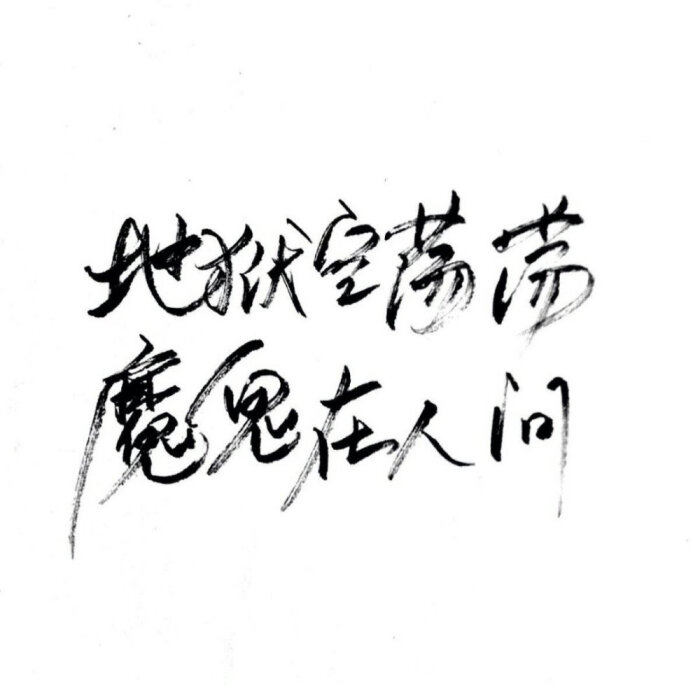 地狱空荡荡
魔鬼在人间